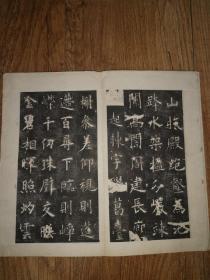 山抗殿絕壑為池
跨水架楹分巖竦
闕高閣周建長廊
起棟宇膠葛臺
榭參差仰視則迢
遞百尋下臨則崢
嶸千仞珠璧交映
金碧相暉照灼雲